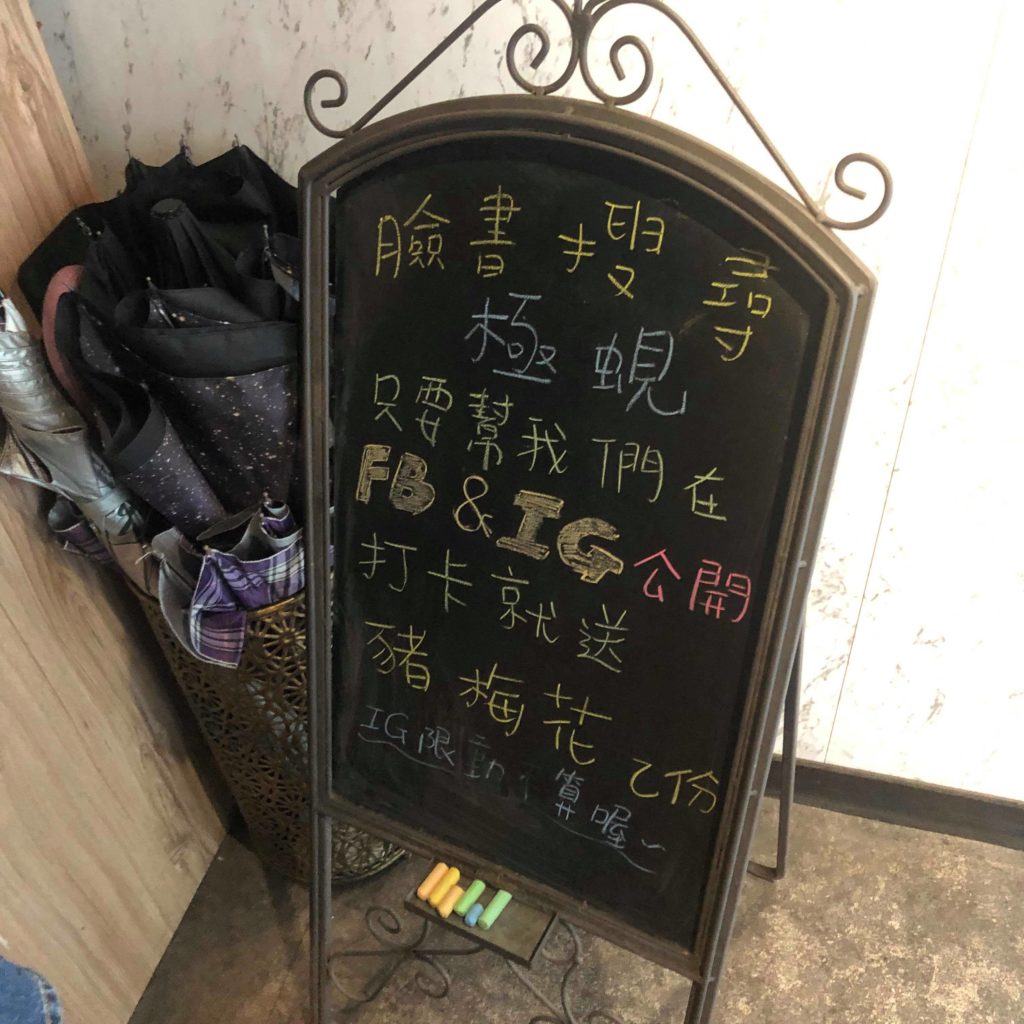 臉書搜尋
極蜆
只要幫我們在
FB & IG 公開
打卡就送
豬梅花乙份
IG限動不算喔~